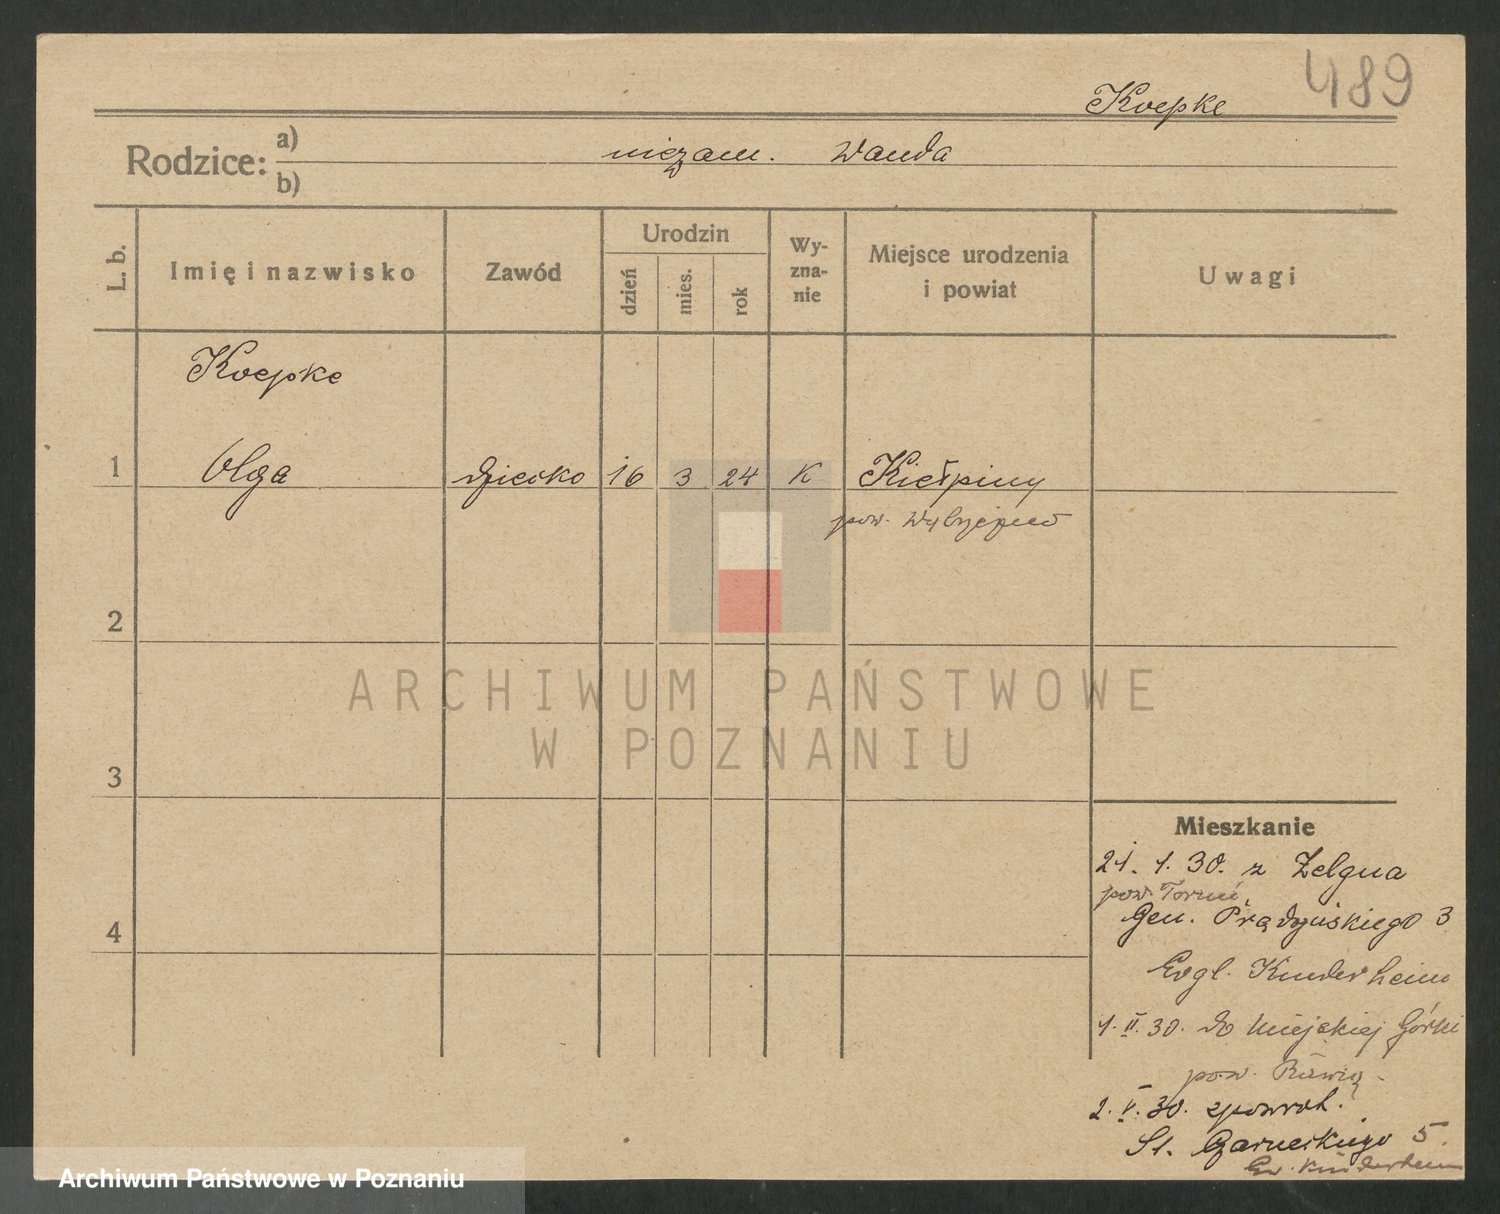 489
Koepke
Rodzice: a) niezam. Wanda
b)
L. b.
Imię i nazwisko
Zawód
Urodzin
dzień
mies.
rok
Wy-
zna-
nie
Miejsce urodzenia
i powiat
Uwagi
Koepke
1 Olga dziecko 16 3 24 K Kiełpiny
pow. Wąbrzeźno
2
3
4
ARCHIWUM PAŃSTWOWE
W POZNANIU
Mieszkanie
21. 1. 30. z Zelgna
pow. Toruń
Gen. Prądzyńskiego 3
Evgl. Kinderheim
1. II. 30. do Miejskiej Górki
pow. Rawicz
2. V. 30. zpowrot.
St. Czarneckiego 5.
Ew. Kinderheim
Archiwum Państwowe w Poznaniu